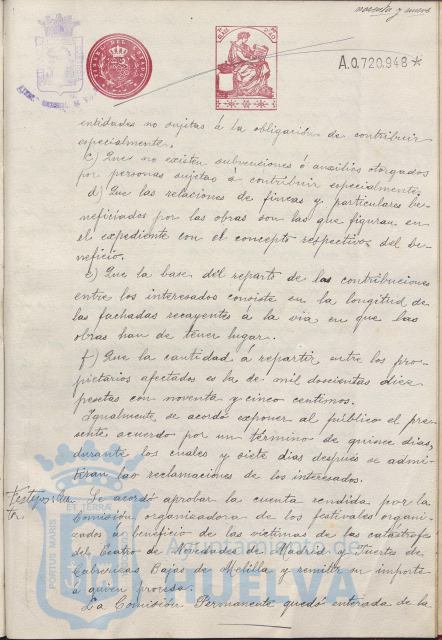 noventa y nueve
A.0.720.948*
entidades no sujetas á la obligación de contribuir
especialmente.
c) Que no existen subvenciones ó auxilios otorgados
por personas sujetas á contribuir especialmente.
d) Que las relaciones de fincas y particulares be-
neficiados por las obras son las que figuran en
el expediente con el concepto respectivo del be-
neficio.
e) Que la base del reparto de las contribuciones
entre los interesados consiste en la longitud de
las fachadas recayentes á la via en que las
obras han de tener lugar.
f) Que la cantidad á repartir entre los pro-
pietarios afectados es la de mil doscientas diez
pesetas con noventa y cinco centimos.
Igualmente se acordó exponer al público el pre-
sente acuerdo por un término de quince dias,
durante los cuales y siete dias después se admi-
tiran las reclamaciones de los interesados.
Se acordó aprobar la cuenta rendida por la
Comisión organizadora de los festivales organi-
zados á beneficio de las victimas de las catástrofes
del Teatro de Novedades de Madrid y Fuertes de
Cabrerizas Bajas de Melilla y remitir su importe
á quien proceda.
La Comisión Permanente quedó enterada de la
PORTUS MARIS
ET TERRÆ
HUELVA